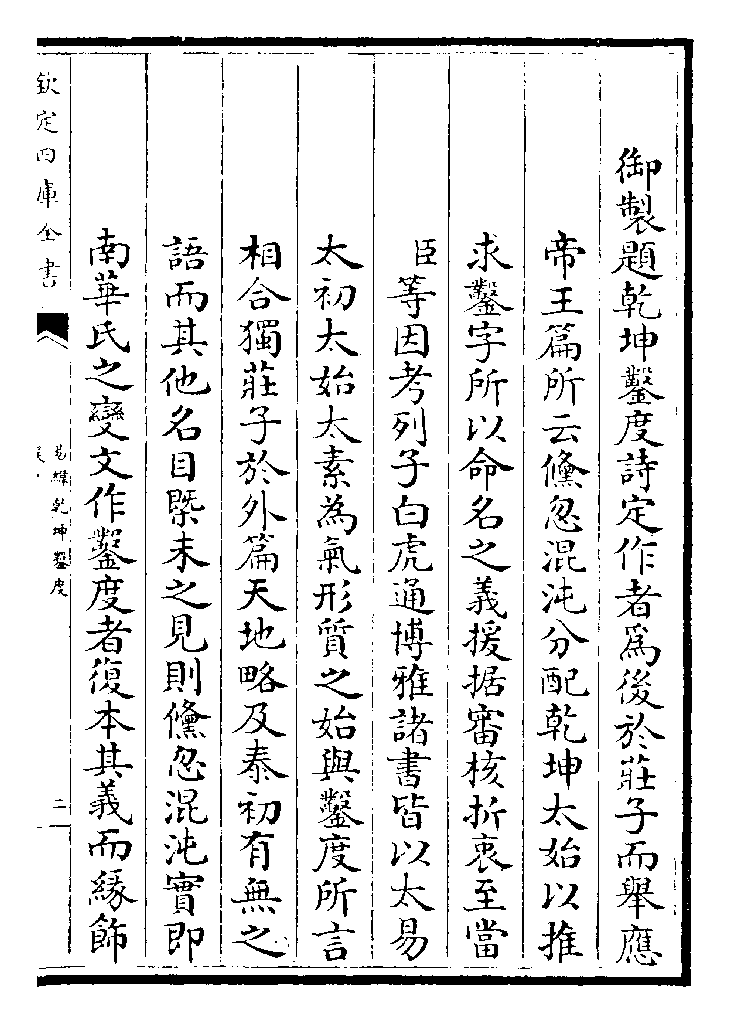 御製題乾坤鑿度詩定作者爲後於莊子而舉應
帝王篇所云儵忽混沌分配乾坤太始以推
求鑿字所以命名之義援据審核折衷至當
臣等因考列子白虎通博雅諸書皆以太易
太初太始太素為氣形質之始與鑿度所言
相合獨莊子於外篇天地略及泰初有無之
語而其他名目槩未之見則儵忽混沌實即
南華氏之變文作鑿度者復本其義而緣飾
欽定四庫全書
易緯乾坤鑿度
二